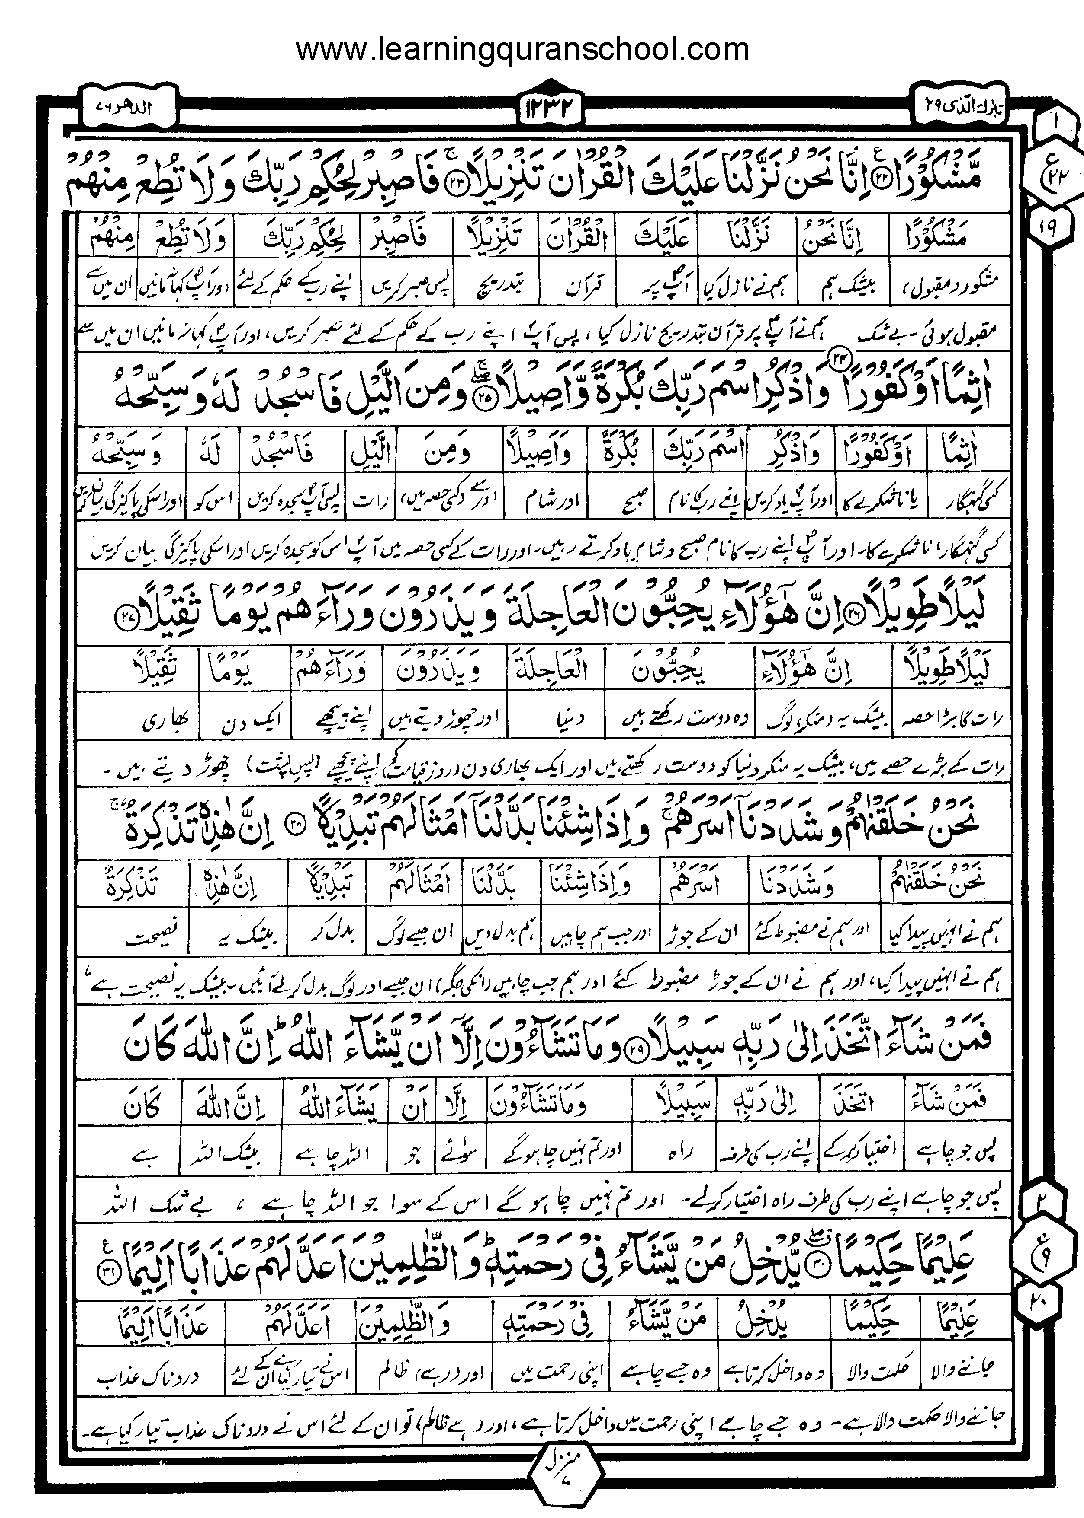 www.learningquranschool.com
الدهر ٧٦
١٢٣٢
تبٰرك الذی ٢٩
١
ع
٢٢
١٩
مَّشْكُوْرًا ۝٢٢ اِنَّا نَحْنُ نَزَّلْنَا عَلَيْكَ الْقُرْاٰنَ تَنْزِيْلًا ۝٢٣ فَاصْبِرْ لِحُكْمِ رَبِّكَ وَلَا تُطِعْ مِنْهُمْ
مَشْكُوْرًا | اِنَّا نَحْنُ | نَزَّلْنَا | عَلَيْكَ | الْقُرْاٰنَ | تَنْزِيْلًا | فَاصْبِرْ | لِحُكْمِ رَبِّكَ | وَلَا تُطِعْ | مِنْهُمْ
مشکور (مقبول) | بیشک ہم | ہم نے نازل کیا | آپؐ پر | قرآن | بتدریج | پس صبر کریں | اپنے رب کے حکم کے لئے | اور آپؐ کہا نہ مانیں | ان میں سے
مقبول ہوئی ۔ بے شک ہم نے آپؐ پر قرآن بتدریج نازل کیا، پس آپؐ اپنے رب کے حکم کے لئے صبر کریں، اور آپؐ کہا نہ مانیں ان میں سے
اٰثِمًا اَوْ كَفُوْرًا ۝٢٤ وَاذْكُرِ اسْمَ رَبِّكَ بُكْرَةً وَّاَصِيْلًا ۝٢٥ وَمِنَ الَّيْلِ فَاسْجُدْ لَهٗ وَسَبِّحْهُ
اٰثِمًا | اَوْ كَفُوْرًا | وَاذْكُرِ | اسْمَ رَبِّكَ | بُكْرَةً | وَاَصِيْلًا | وَمِنَ | الَّيْلِ | فَاسْجُدْ | لَهٗ | وَسَبِّحْهُ
کسی گنہگار | یا ناشکرے کا | اور آپؐ یاد کریں | اپنے رب کا نام | صبح | اور شام | اور سے (کسی حصہ میں) | رات | پس آپؐ سجدہ کریں | اس کو | اور اسکی پاکیزگی بیان کریں
کسی گنہگار یا ناشکرے کا۔ اور آپؐ اپنے رب کا نام صبح و شام یاد کرتے رہیں۔ اور رات کے کسی حصہ میں آپؐ اس کو سجدہ کریں اور اسکی پاکیزگی بیان کریں
لَيْلًا طَوِيْلًا ۝٢٦ اِنَّ هٰٓؤُلَآءِ يُحِبُّوْنَ الْعَاجِلَةَ وَيَذَرُوْنَ وَرَآءَهُمْ يَوْمًا ثَقِيْلًا ۝٢٧
لَيْلًا طَوِيْلًا | اِنَّ هٰٓؤُلَآءِ | يُحِبُّوْنَ | الْعَاجِلَةَ | وَيَذَرُوْنَ | وَرَآءَهُمْ | يَوْمًا | ثَقِيْلًا
رات کا بڑا حصہ | بیشک یہ (منکر) لوگ | وہ دوست رکھتے ہیں | دنیا | اور چھوڑ دیتے ہیں | اپنے پیچھے | ایک دن | بھاری
رات کے بڑے حصے میں، بیشک یہ منکر دنیا کو دوست رکھتے ہیں اور ایک بھاری دن (روز قیامت کو) اپنے پیچھے (پس پشت) چھوڑ دیتے ہیں۔
نَحْنُ خَلَقْنٰهُمْ وَشَدَدْنَآ اَسْرَهُمْ ۚ وَاِذَا شِئْنَا بَدَّلْنَآ اَمْثَالَهُمْ تَبْدِيْلًا ۝٢٨ اِنَّ هٰذِهٖ تَذْكِرَةٌ ۚ
نَحْنُ خَلَقْنٰهُمْ | وَشَدَدْنَا | اَسْرَهُمْ | وَاِذَا شِئْنَا | بَدَّلْنَا | اَمْثَالَهُمْ | تَبْدِيْلًا | اِنَّ هٰذِهٖ | تَذْكِرَةٌ
ہم نے انہیں پیدا کیا | اور ہم نے مضبوط کئے | ان کے جوڑ | اور جب ہم چاہیں | ہم بدل دیں | ان جیسے لوگ | بدل کر | بیشک یہ | نصیحت
ہم نے انہیں پیدا کیا، اور ہم نے ان کے جوڑ مضبوط کئے اور ہم جب چاہیں (انکی جگہ) ان جیسے اور لوگ بدل کر لے آئیں۔ بیشک یہ نصیحت ہے،
فَمَنْ شَآءَ اتَّخَذَ اِلٰى رَبِّهٖ سَبِيْلًا ۝٢٩ وَمَا تَشَآءُوْنَ اِلَّآ اَنْ يَّشَآءَ اللّٰهُ ؕ اِنَّ اللّٰهَ كَانَ
فَمَنْ شَآءَ | اتَّخَذَ | اِلٰى رَبِّهٖ | سَبِيْلًا | وَمَا تَشَآءُوْنَ | اِلَّا | اَنْ | يَشَآءَ اللّٰهُ | اِنَّ اللّٰهَ | كَانَ
پس جو چاہے | اختیار کر کے | اپنے رب کی طرف | راہ | اور تم نہیں چاہو گے | سوائے | جو | اللہ چاہے | بیشک اللہ | ہے
پس جو چاہے اپنے رب کی طرف راہ اختیار کر لے۔ اور تم نہیں چاہو گے اس کے سوا جو اللہ چاہے ، بے شک اللہ
٢
ع
٩
٢٠
عَلِيْمًا حَكِيْمًا ۝٣٠ يُّدْخِلُ مَنْ يَّشَآءُ فِيْ رَحْمَتِهٖ ؕ وَالظّٰلِمِيْنَ اَعَدَّ لَهُمْ عَذَابًا اَلِيْمًا ۝٣١
عَلِيْمًا | حَكِيْمًا | يُدْخِلُ | مَنْ يَّشَآءُ | فِيْ رَحْمَتِهٖ | وَالظّٰلِمِيْنَ | اَعَدَّ لَهُمْ | عَذَابًا اَلِيْمًا
جاننے والا | حکمت والا | وہ داخل کرتا ہے | وہ جسے چاہے | اپنی رحمت میں | اور (رہے) ظالم | اس نے تیار کیا ان کے لئے | دردناک عذاب
جاننے والا حکمت والا ہے۔ وہ جسے چاہے اپنی رحمت میں داخل کرتا ہے، اور رہے ظالم، تو ان کے لئے اس نے دردناک عذاب تیار کیا ہے۔
منزل ٧